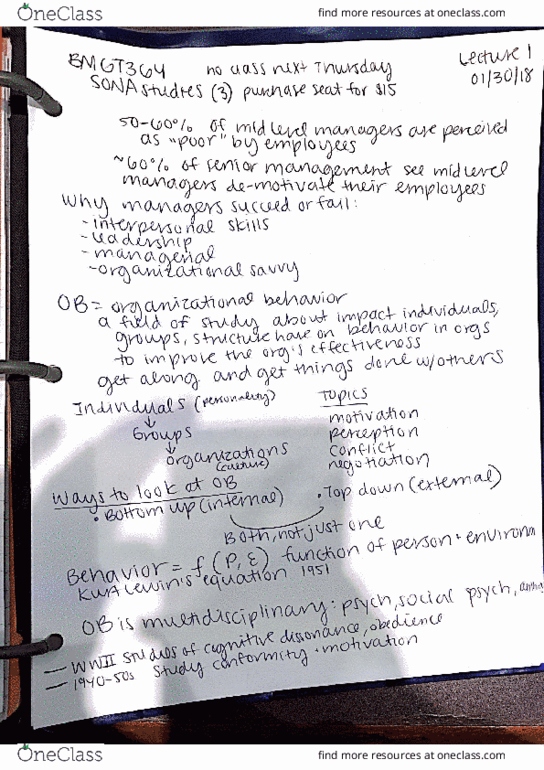 OneClass
find more resources at oneclass.com
BMGT364 no class next Thursday Lecture 1
SONA studies (3) purchase seat for $15 01/30/18
50-60% of mid level managers are perceived
as "poor" by employees
~60% of senior management see midlevel
managers de-motivate their employees
Why managers succeed or fail:
- interpersonal skills
- leadership
- managerial
- organizational savvy
OB = organizational behavior
a field of study about impact individuals,
groups, structure have on behavior in orgs
to improve the org's effectiveness
get along and get things done w/others
Individuals (personality)
↓
Groups
↓
organizations
(culture)
TOPICS
motivation
perception
conflict
negotiation
Ways to look at OB
• Bottom up (internal) • Top down (external)
Both, not just one
Behavior = f (P, E) function of person + environm
Lewin's equation 1951
OB is multidisciplinary: psych, social psych,
— WWII studies of cognitive dissonance, obedience
— 1940-50s study conformity + motivation
OneClass
find more resources at oneclass.com